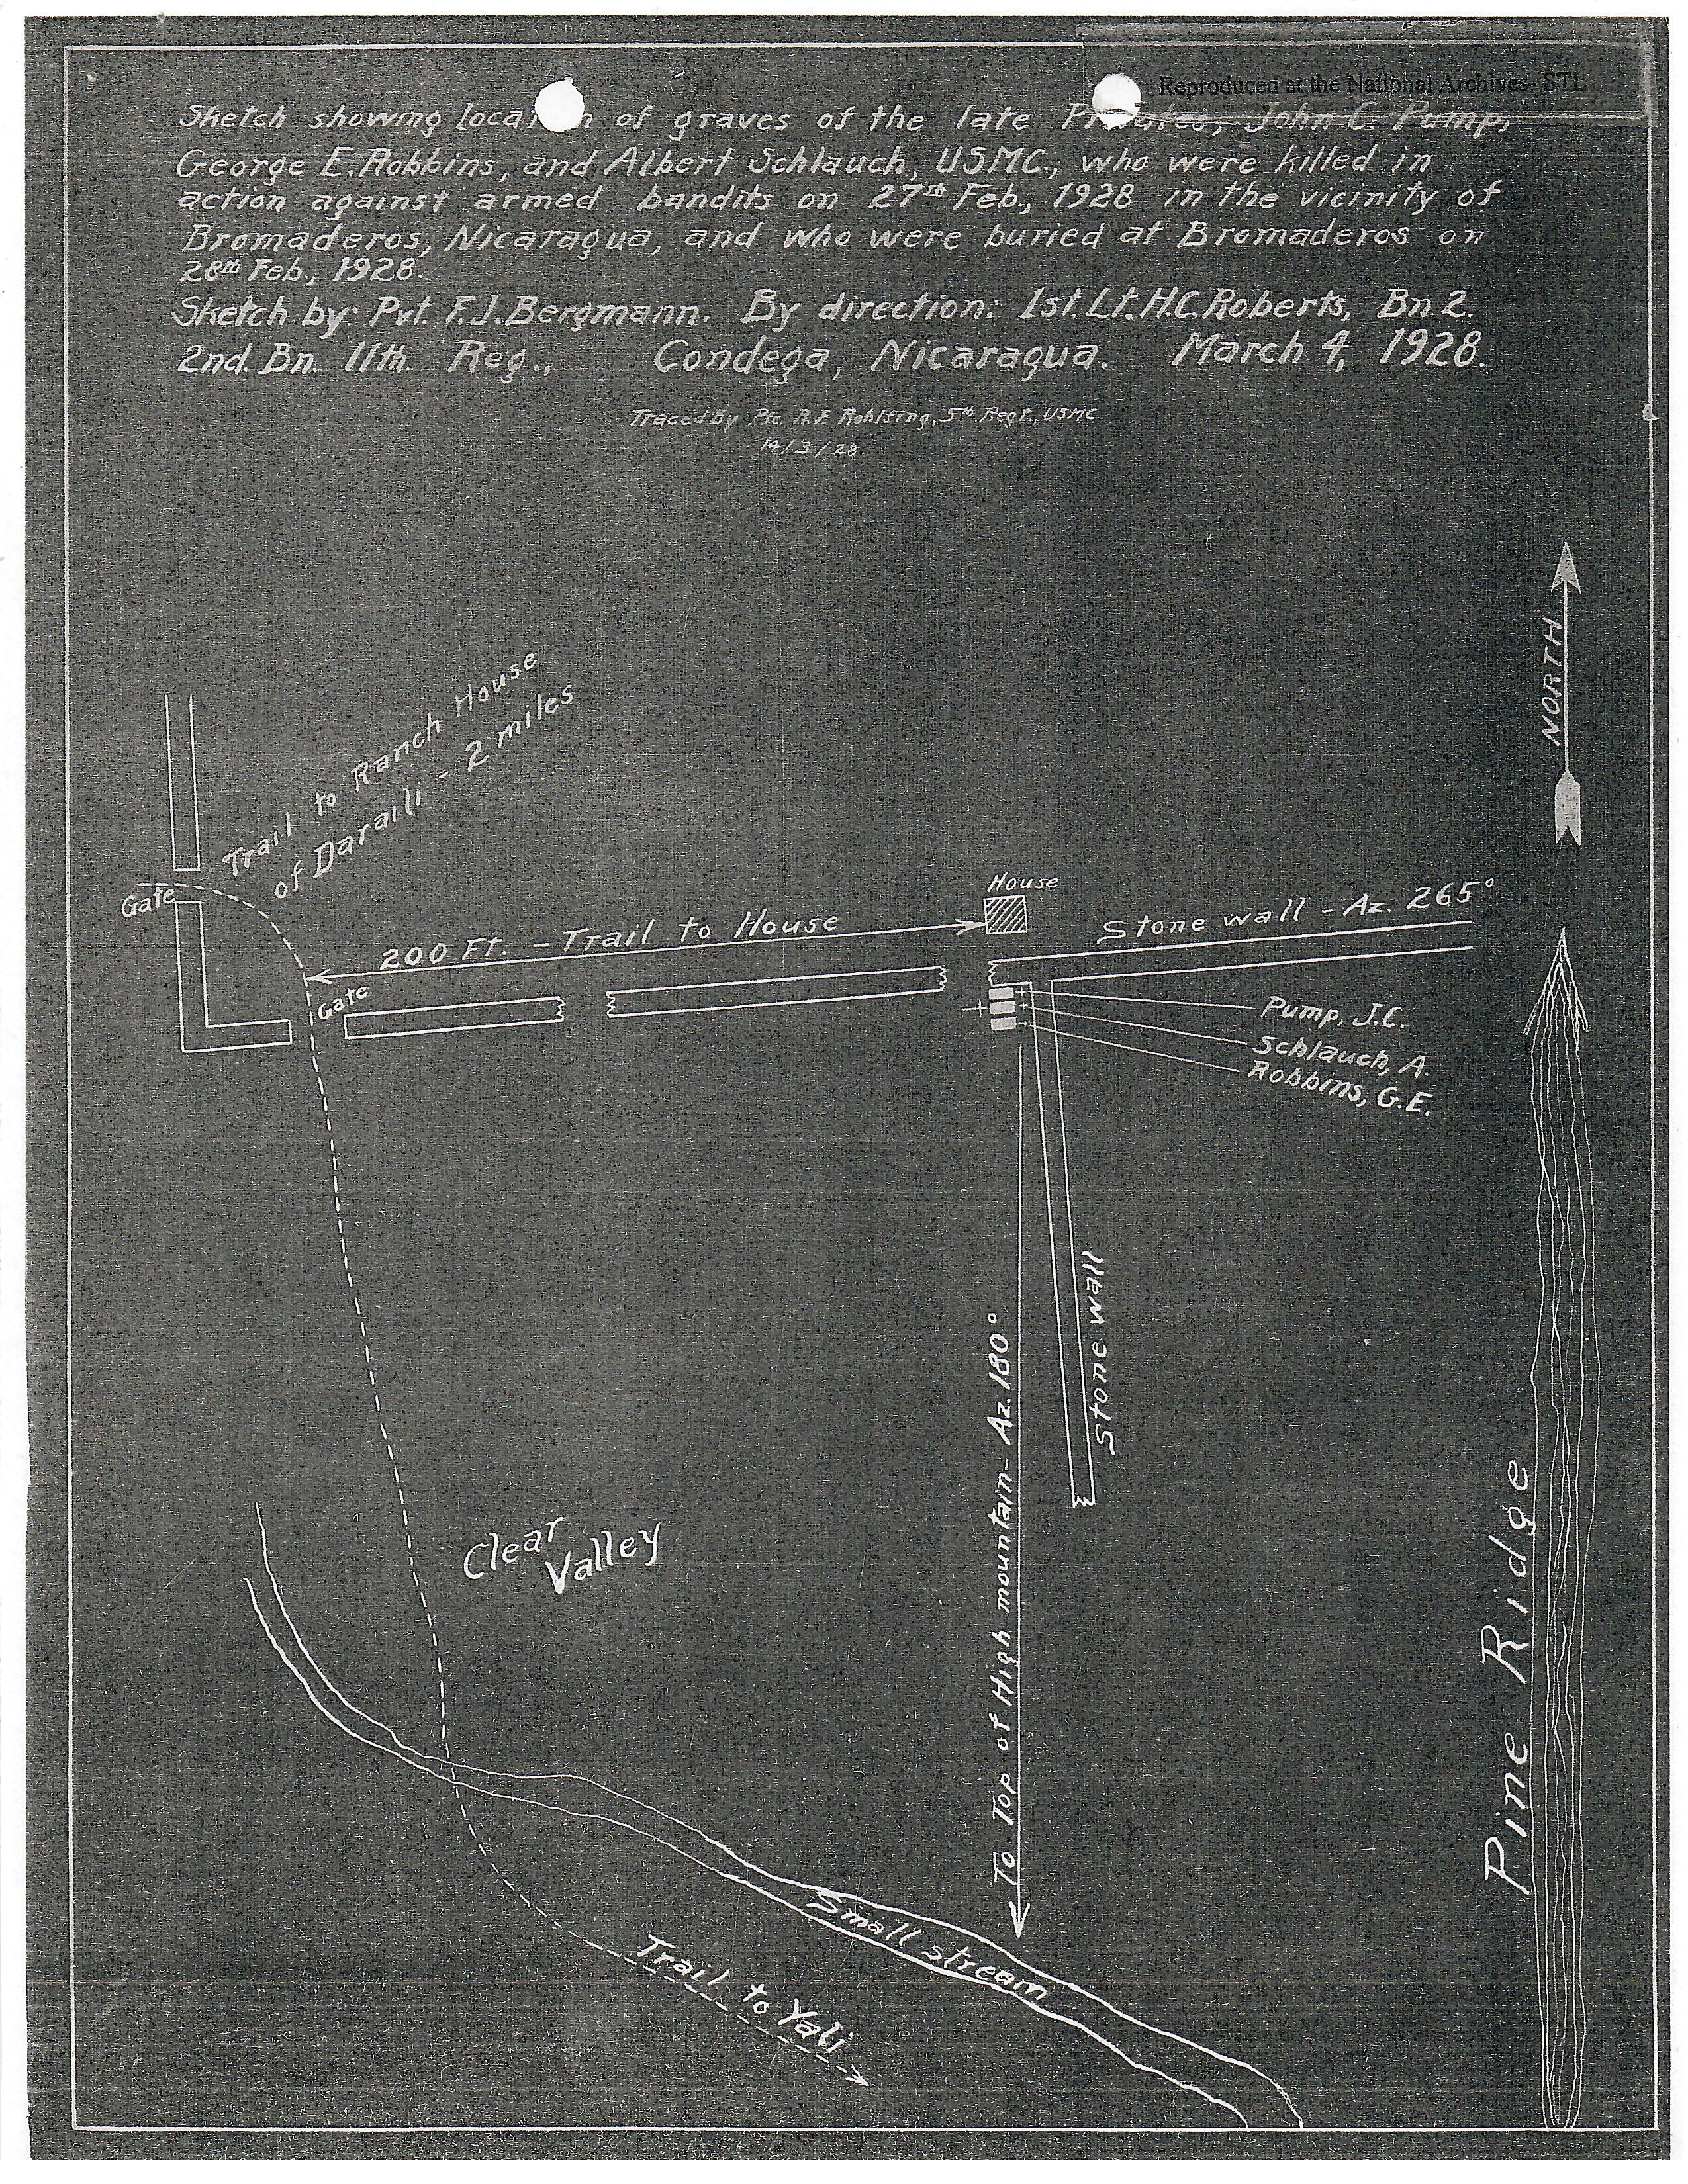 Reproduced at the National Archives- STL
Sketch showing location of graves of the late Privates, John C. Pump,
George E. Robbins, and Albert Schlauch, USMC., who were killed in
action against armed bandits on 27th Feb., 1928 in the vicinity of
Bromaderos, Nicaragua, and who were buried at Bromaderos on
28th Feb., 1928.
Sketch by: Pvt. F.J. Bergmann. By direction: 1st. Lt. H.C. Roberts, Bn. 2.
2nd. Bn. 11th. Reg., Condega, Nicaragua. March 4, 1928.
Traced By Pfc. R.F. Rohlsing, 5th Regt., USMC
14/3/28
NORTH
Trail to Ranch House
of Daraili - 2 miles
Gate
House
200 Ft. - Trail to House
Stone wall - Az. 265°
Gate
Pump, J.C.
Schlauch, A.
Robbins, G.E.
Stone wall
To Top of High mountain - Az. 180°
Clear
Valley
Pine Ridge
Small stream
Trail to Yali